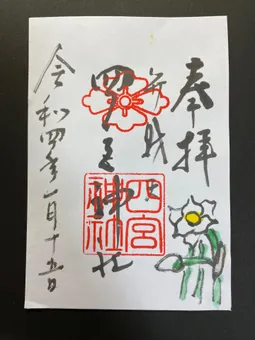 奉拝
無戦
四宮神社
四宮
神社
令和四年一月十五日